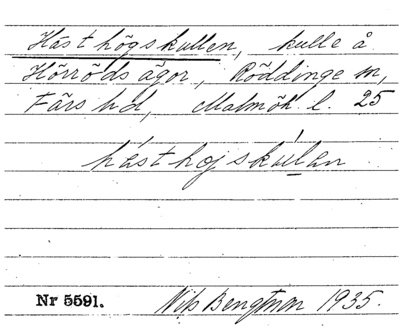 Hästhögskullen, kulle å
Hörröds ägor, Röddinge sn,
Färs hd, Malmöh. l. 25
hásthojskúlan
Nr 5591. Nils Bengtsson 1935.